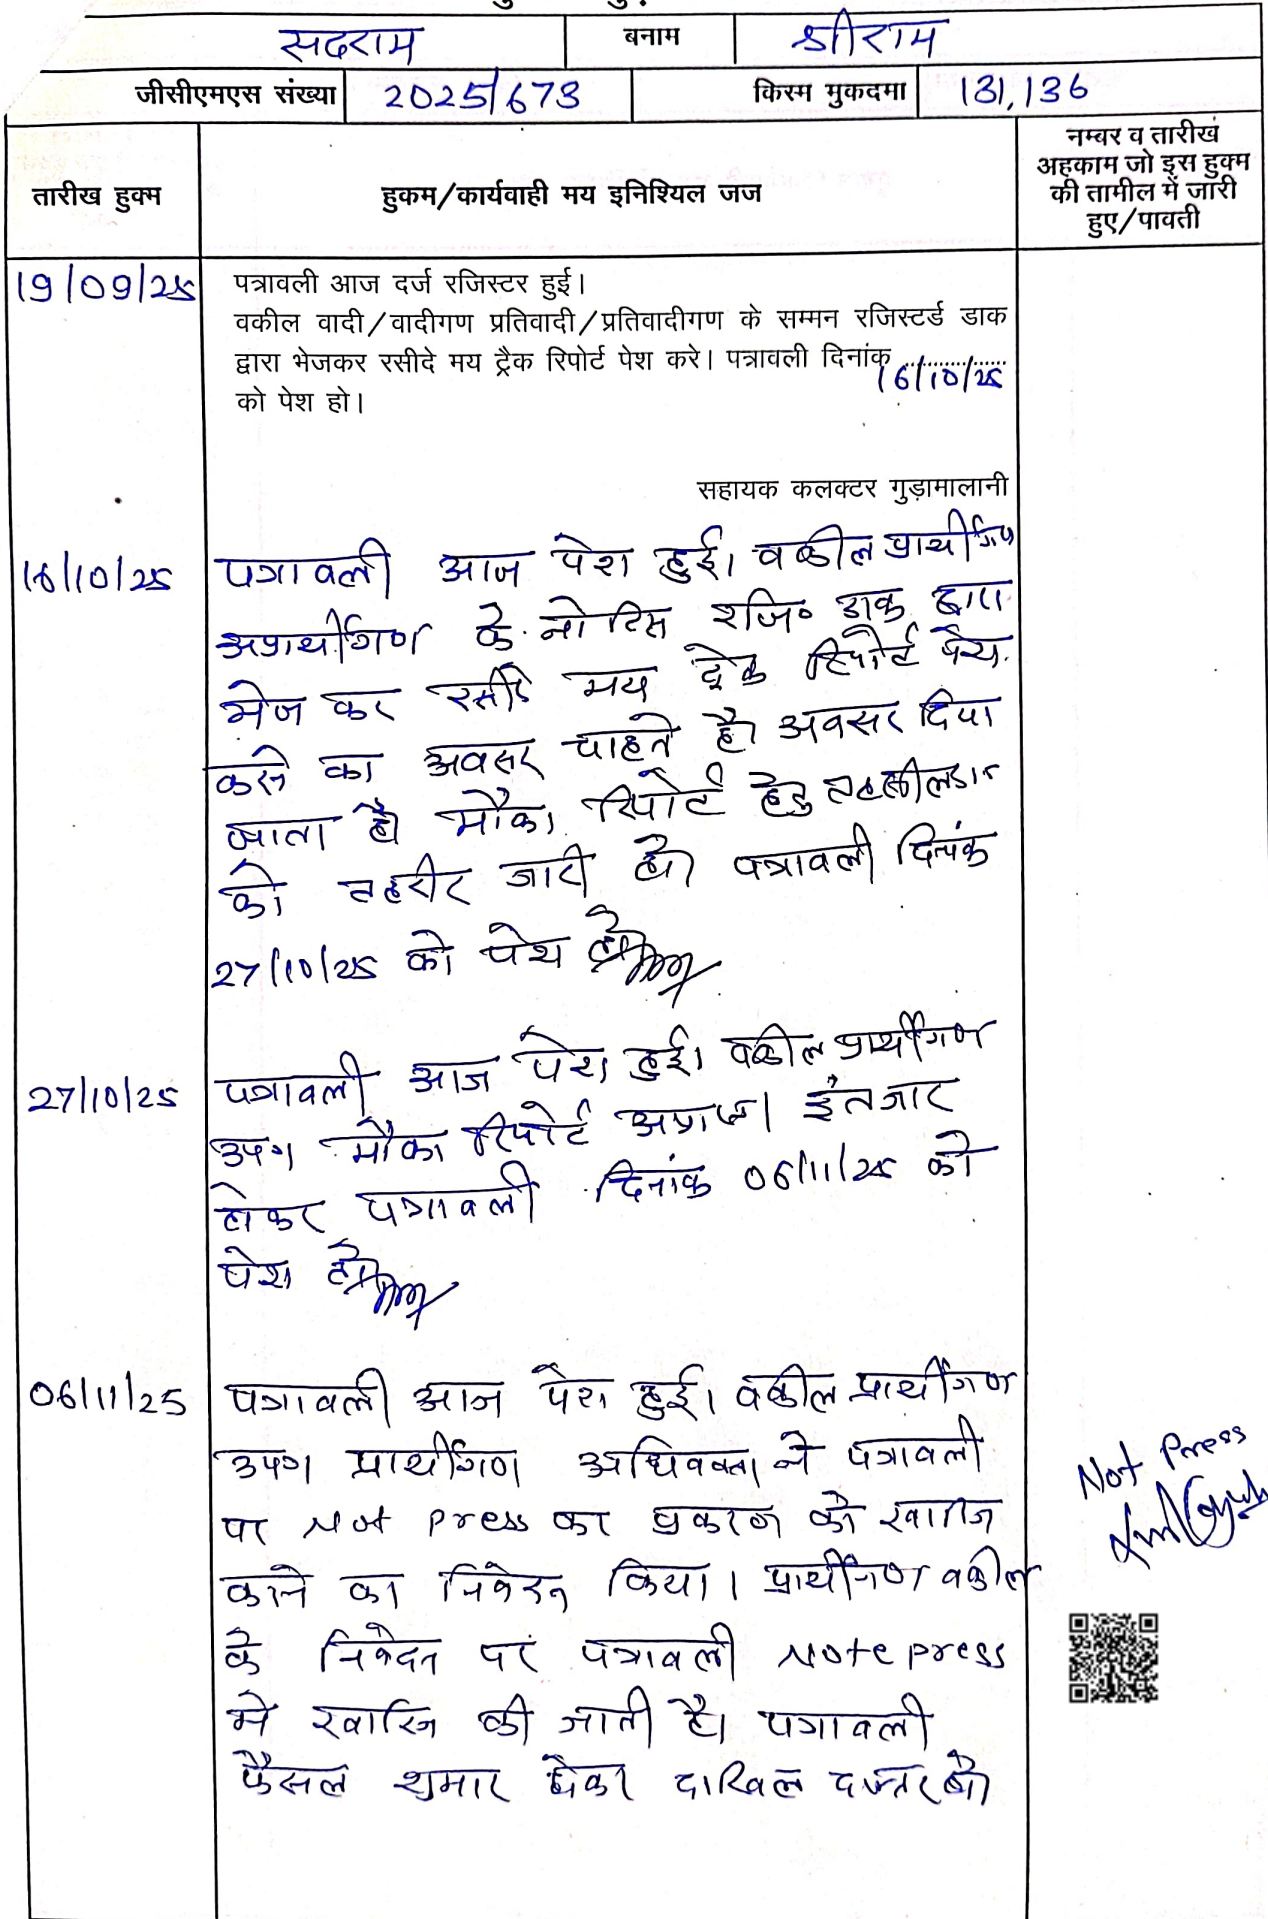 सदराम बनाम श्रीराम
जीसीएमएस संख्या 2025/673 किस्म मुकदमा 131,136
तारीख हुक्म
हुकम/कार्यवाही मय इनिश्यिल जज
नम्बर व तारीख
अहकाम जो इस हुक्म
की तामील में जारी
हुए/पावती
19/09/25 पत्रावली आज दर्ज रजिस्टर हुई।
वकील वादी/वादीगण प्रतिवादी/प्रतिवादीगण के सम्मन रजिस्टर्ड डाक
द्वारा भेजकर रसीदे मय ट्रैक रिपोर्ट पेश करे। पत्रावली दिनांक 16/10/25
को पेश हो।
सहायक कलक्टर गुड़ामालानी
16/10/25 पत्रावली आज पेश हुई। वकील प्रार्थीगण
अप्रार्थीगण के नोटिस रजि० डाक द्वारा
भेज कर रसीदे मय ट्रेक रिपोर्ट पेश
करने का अवसर चाहते है। अवसर दिया
जाता है। मौका रिपोर्ट हेतु तहसीलदार
को तहरीर जारी हो। पत्रावली दिनांक
27/10/25 को पेश हो
27/10/25 पत्रावली आज पेश हुई। वकील प्रार्थीगण
उप० मौका रिपोर्ट अप्राप्त। इंतजार
होकर पत्रावली दिनांक 06/11/25 को
पेश हो
06/11/25 पत्रावली आज पेश हुई। वकील प्रार्थीगण
उप० प्रार्थीगण अधिवक्ता ने पत्रावली
पर Not press कर प्रकरण को खारिज
करने का निवेदन किया। प्रार्थीगण वकील
के निवेदन पर पत्रावली Note press
मे खारिज की जाती है। पत्रावली
फैसल शुमार होकर दाखिल दफ्तर हो
Not Press